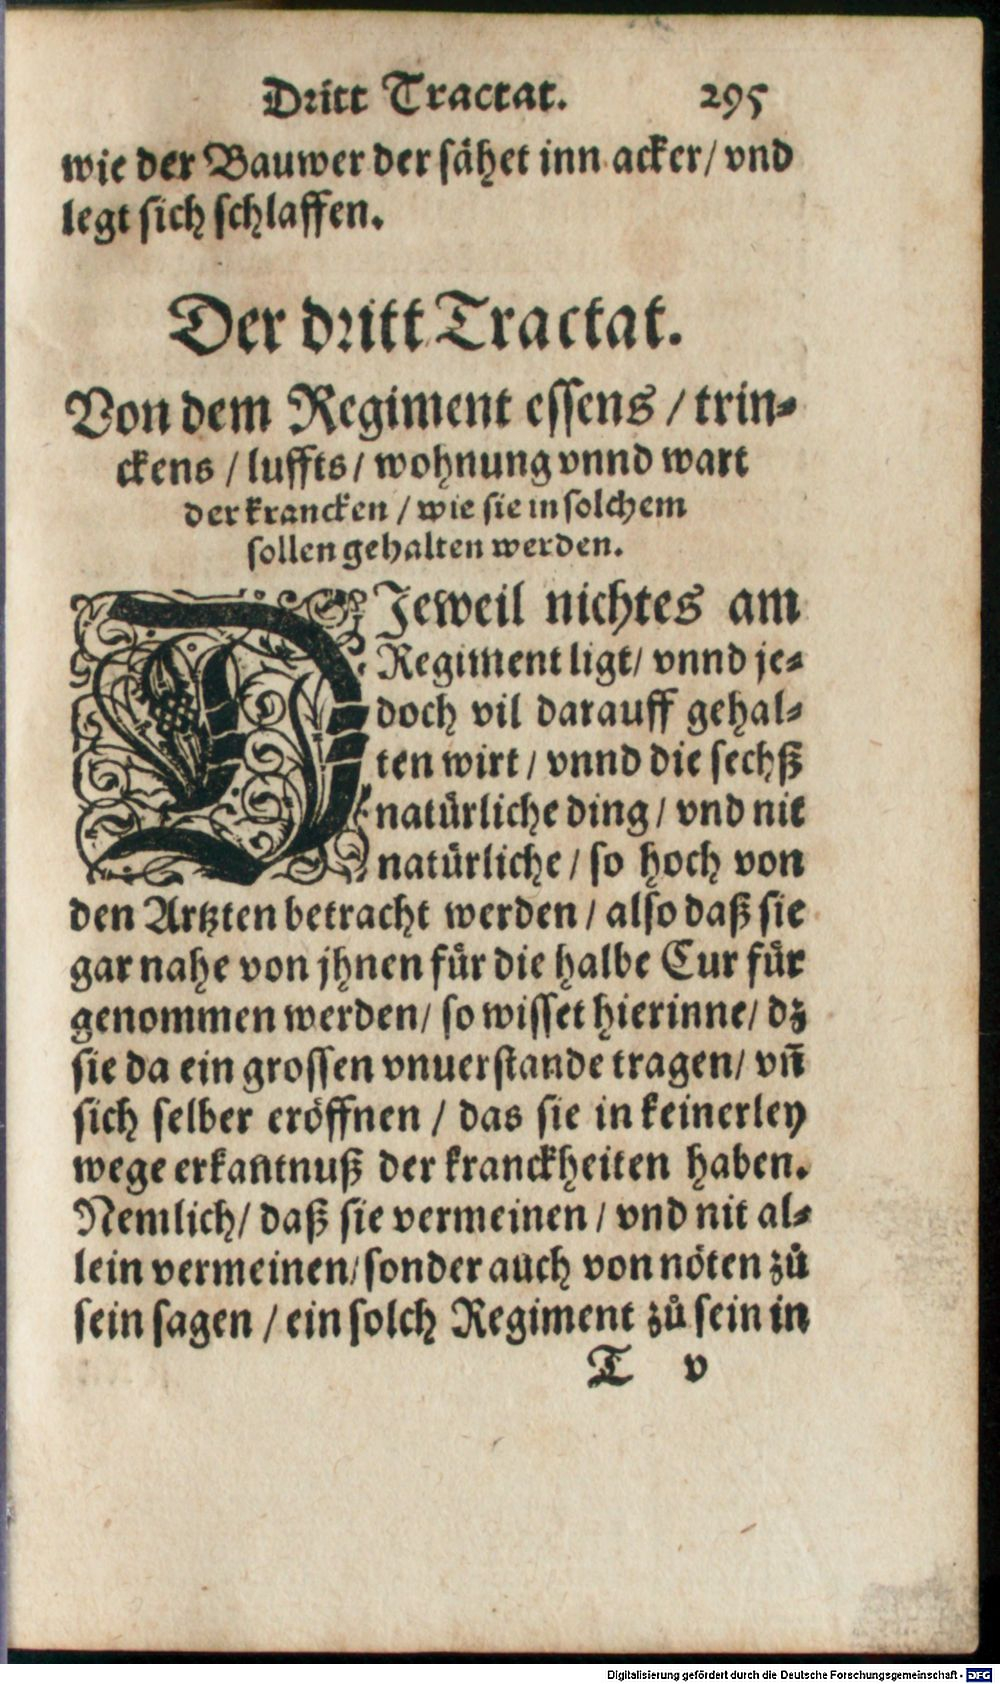 Dritt Tractat. 295
wie der Bauwer der sähet inn acker/ vnd
legt sich schlaffen.
Der dritt Tractat.
Von dem Regiment essens / trin-
ckens / luffts / wohnung vnnd wart
der krancken / wie sie in solchem
sollen gehalten werden.
DJeweil nichtes am
Regiment ligt/ vnnd je-
doch vil darauff gehal-
ten wirt / vnnd die sechß
natürliche ding / vnd nit
natürliche / so hoch von
den Artzten betracht werden / also daß sie
gar nahe von jhnen für die halbe Cur für
genommen werden/ so wisset hierinne/ dz
sie da ein grossen vnuerstande tragen/ vn̄
sich selber eröffnen / das sie in keinerley
wege erkantnuß der kranckheiten haben.
Nemlich/ daß sie vermeinen / vnd nit al-
lein vermeinen/ sonder auch von nöten zů
sein sagen / ein solch Regiment zů sein in
T v
Digitalisierung gefördert durch die Deutsche Forschungsgemeinschaft - DFG